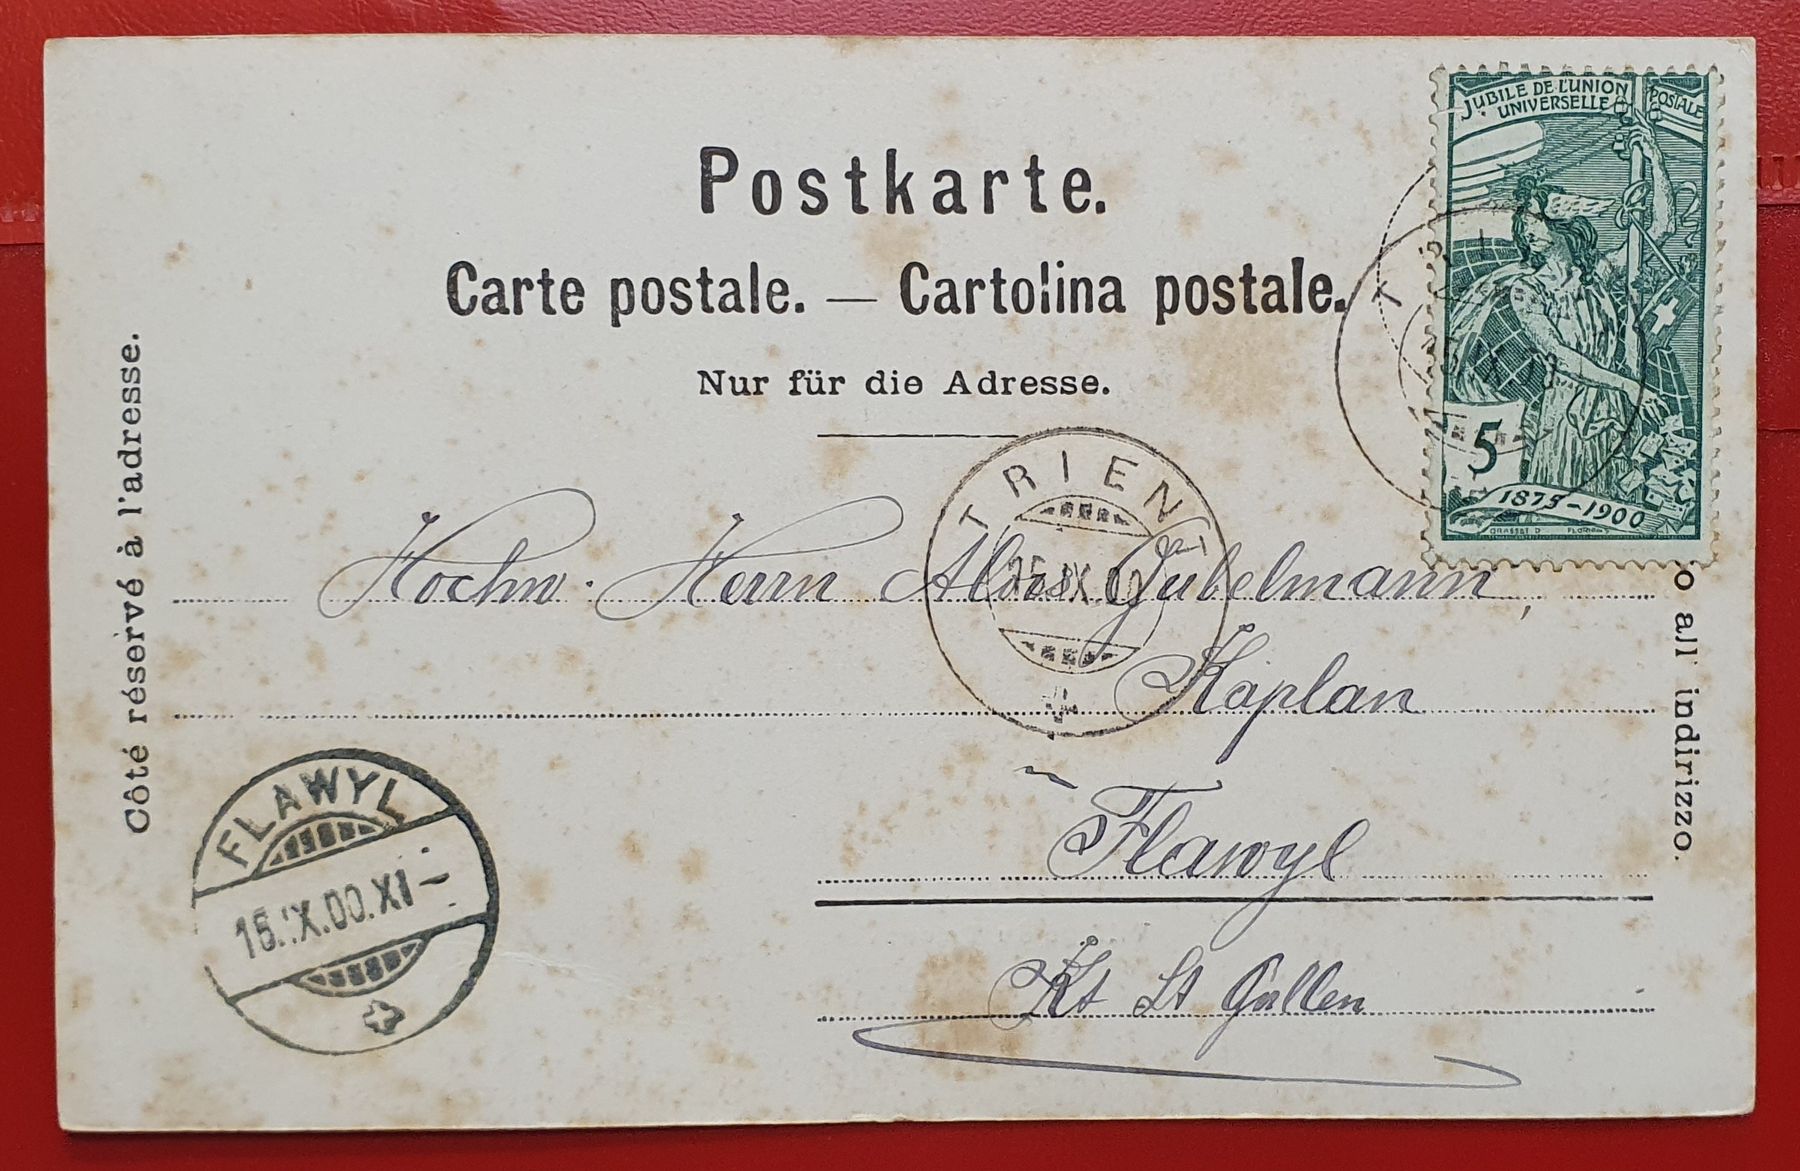 Postkarte.
Carte postale. — Cartolina postale.
Nur für die Adresse.
Côté réservé à l'adresse.
o all' indirizzo.
JUBILE DE L'UNION POSTALE
UNIVERSELLE
5
1875-1900
GRASSET D
TRIENT
IX
Hochw. Herrn Alois Gubelmann,
Kaplan
Flawyl
Kt St Gallen
FLAWYL
16.IX.00.XI-